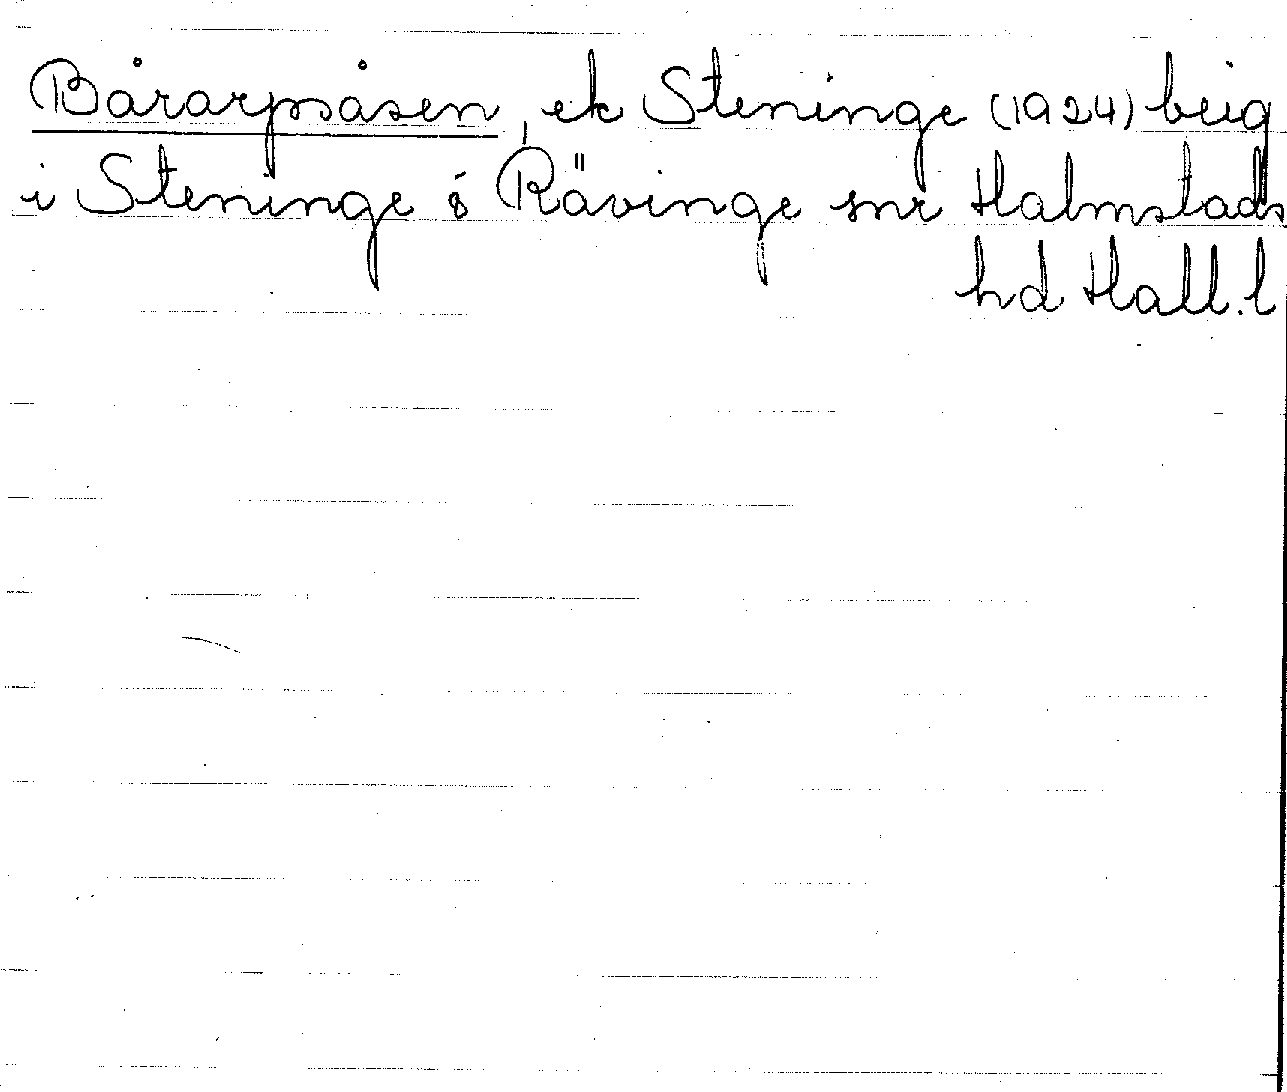 Bårarpsåsen, ek Steninge (1924) beig
i Steninge & Rävinge snr Halmstads
hd Hall. l